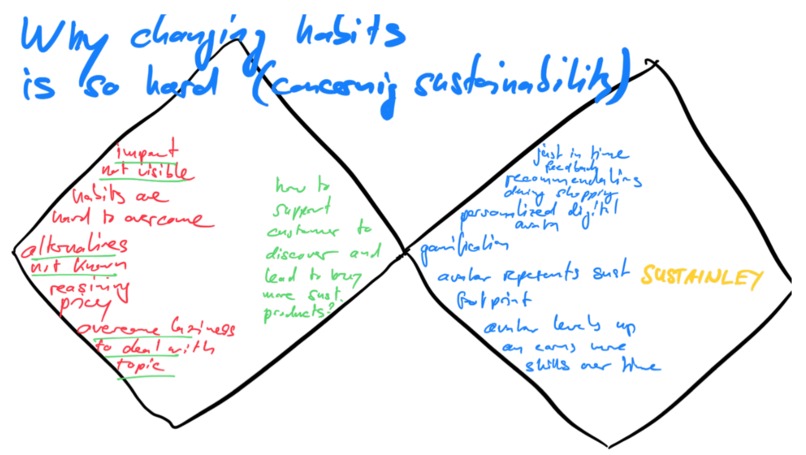 Why changing habits
is so hard (concernig sustainability)
impact
not visible
habits are
hard to overcome
alternatives
not known
pricy
overcome laziness
to deal with
topic
how to
support
customer to
discover and
lead to buy
more sust.
products?
just in time
feedback
recommendations
during shopping
personalized digital
avatar
gamification
avatar represents sust
footprint
avatar levels up
an earns more
skills over time
SUSTAINLEY